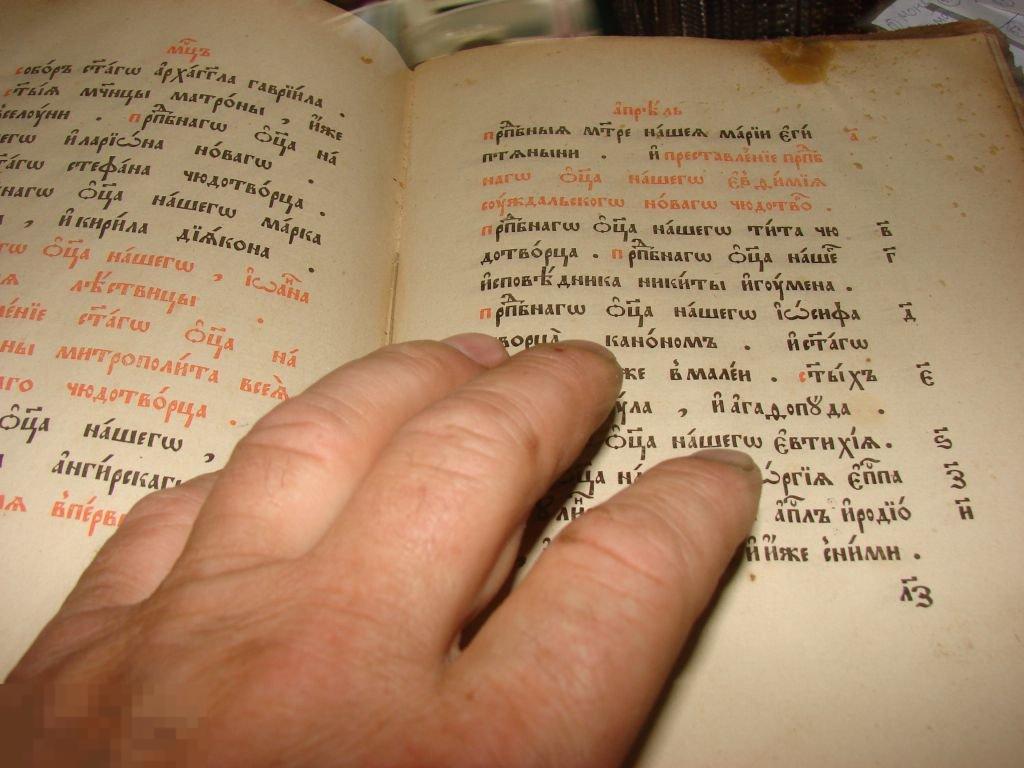 мц҃ъ
собо́ръ ст҃а́гѡ а҆рха́гг҃ла гаврїи́ла .
ст҃ы́ѧ мч҃нцы матро́ны , и҆́же
селоуни . прпⷣбнагѡ ѻ҆ц҃а на
егѡ и҆ларїѡ́на но́вагѡ .
та́гѡ стефа́на чюдотво́рца .
нагѡ ѻ҆ц҃а на́шегѡ ма́рка
, и҆ кири́ла дїѧ́кона .
гѡ ѻ҆ц҃а на́шегѡ , і҆ѡа́нⷩа
ѧ лѣ́ствицы .
ме́нїе ст҃а́гѡ ѻ҆ц҃а на́
ны митрополи́та всеѧ̀
аго чюдотво́рца .
ѻ҆ц҃а на́шегѡ ,
а҆нги́рскагѡ
ѧ в̾пе́рвы
а҆прѣ́ль
прпⷣбныѧ мт҃ре на́шеѧ мар́їи є҆гі́ а҃
птѧныни . и҆ преставле́нїе прпⷣб
нагѡ ѻ҆ц҃а на́шегѡ є҆ѵдимїѧ
соу́ждальскогѡ но́вагѡ чюдотвоⷬ .
прпⷣбнагѡ ѻ҆ц҃а на́шегѡ ти́та чю в҃
дотво́рца . прпⷣбнагѡ ѻ҆ц҃а на́шеⷢ г҃
и҆сповѣ́дника ники́ты и҆гоу́мена .
прпⷣбнагѡ ѻ҆ц҃а на́шегѡ і҆ѡ́сифа д҃
творца̀ кано́номъ . и҆ ст҃а́гѡ
же в̾ мале́и . ст҃ы́хъ є҃
у́ла , и҆ а҆гадопꙋ́да .
ѻ҆ц҃а на́шегѡ є҆втихі́ѧ . ѕ҃
ѻ҆ц҃а на ѡ́ргїѧ є҆пⷭ҇па з҃
а҆пⷭ҇лъ и҆родїо́ и҃
и҆ и҆́же с̾ ни́ми .
л҃з